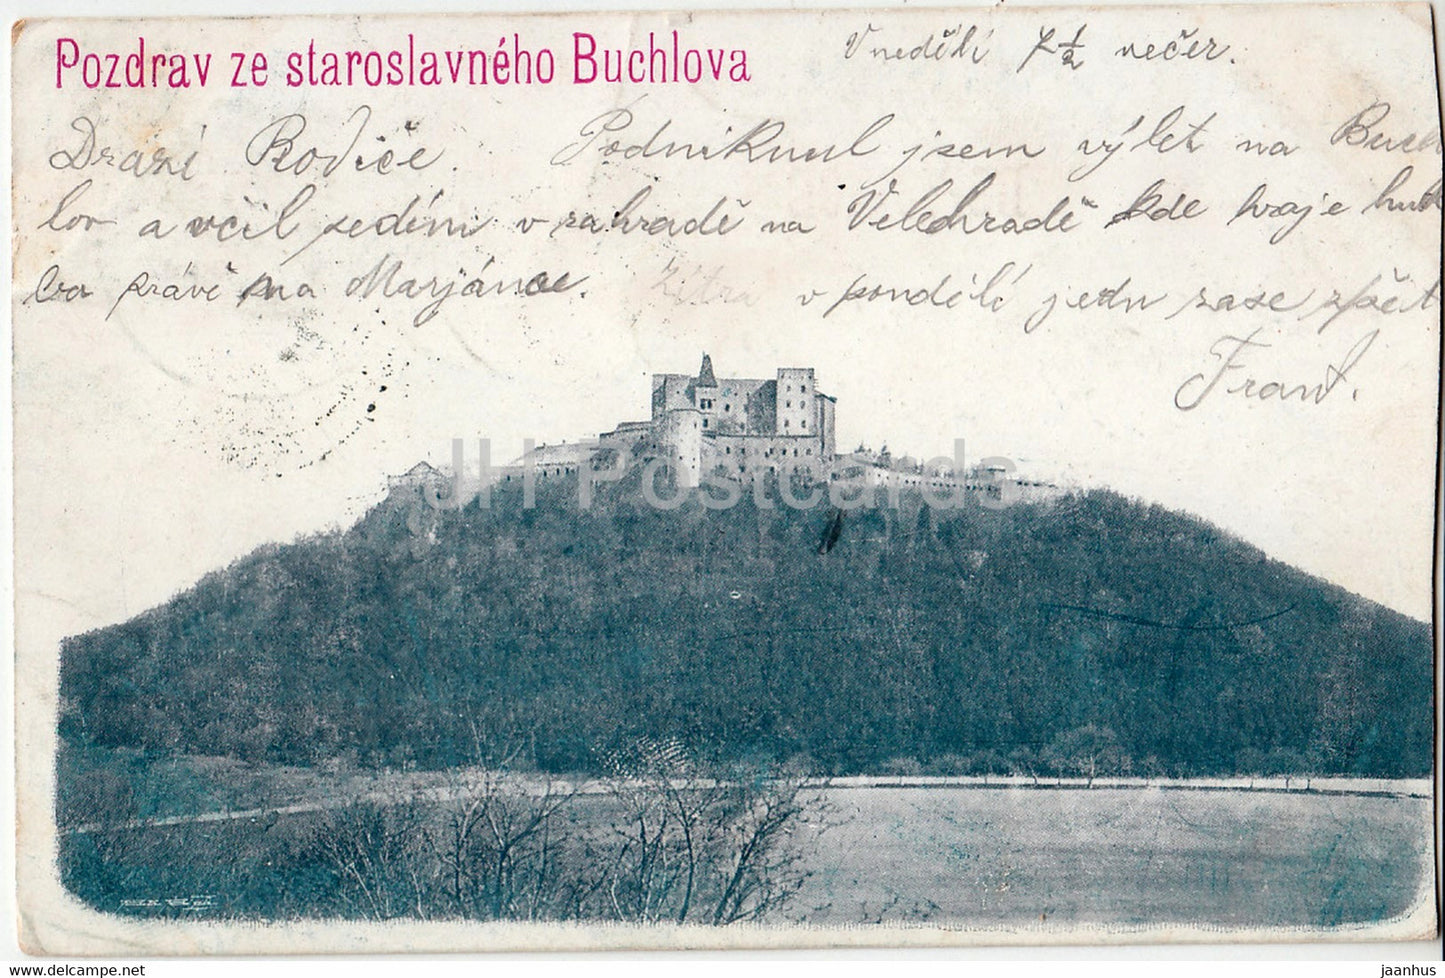 Pozdrav ze staroslavného Buchlova
V neděli 7 ½ večer.
Drazí Rodiče. Podniknul jsem výlet na Buch
lov a včil sedím v zahradě na Velehradě kde hraje hud
ba právě na Marjánce. Zítra v pondělí jedu zase zpět
Frant.
JH Postcards
jaanhus - https://www.delcampe.net